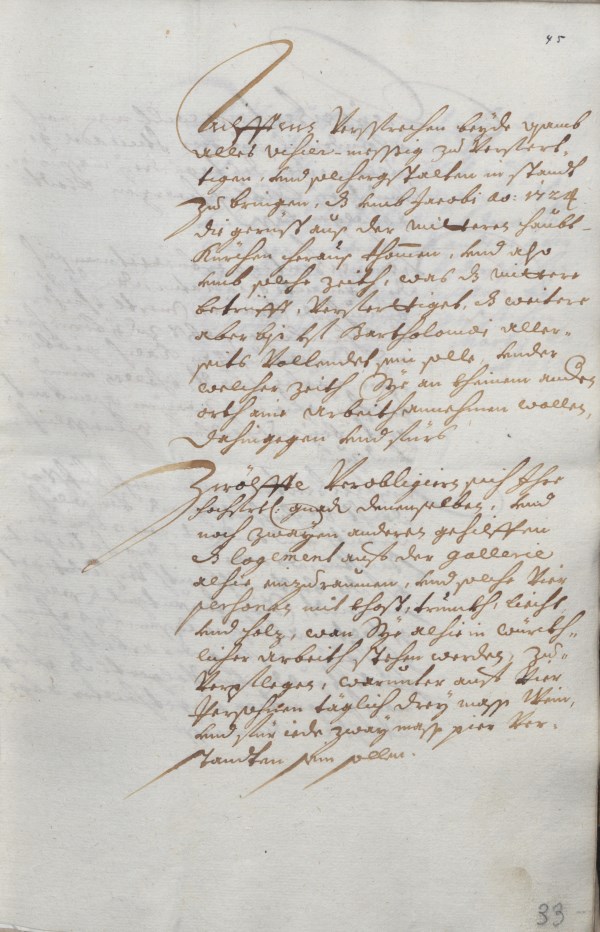 45
Eilfftens Versprechen beyde gsamb
alles visier-messig zu Verfert-
tigen, und solchergstalten in standt
zu bringen, dz umb Jacobi ao: 1724
die gerüst aus der mitteren haubt-
Kürchen heraus khommen, und also
umb solche Zeith, was dz mittere
betrüfft, Verferttiget, dz weitere
aber biß St Bartholomæi aller-
seits Vollendet sein solle, under
welcher Zeith Sye an kheinem anderen
orth aine Arbeith annehmen wollen,
dahingegen und fürs
Zwölffte Verobligiern sich Ihre
hochwrd: gnad denenselben, und
noch zwayen anderen gehilffen
dz logement auß der gallerie
alhie einzuraumen, und solche Vier
persohnen mit khost, trunkh, liecht,
und holz, wan Sye alhie in würkh-
licher Arbeith stehen werden, zu-
Verpflegen, warunter auf Vier
Persohnen täglich drey mass Wein,
und für iede zway mass pier Ver-
standten sein sollen.
33